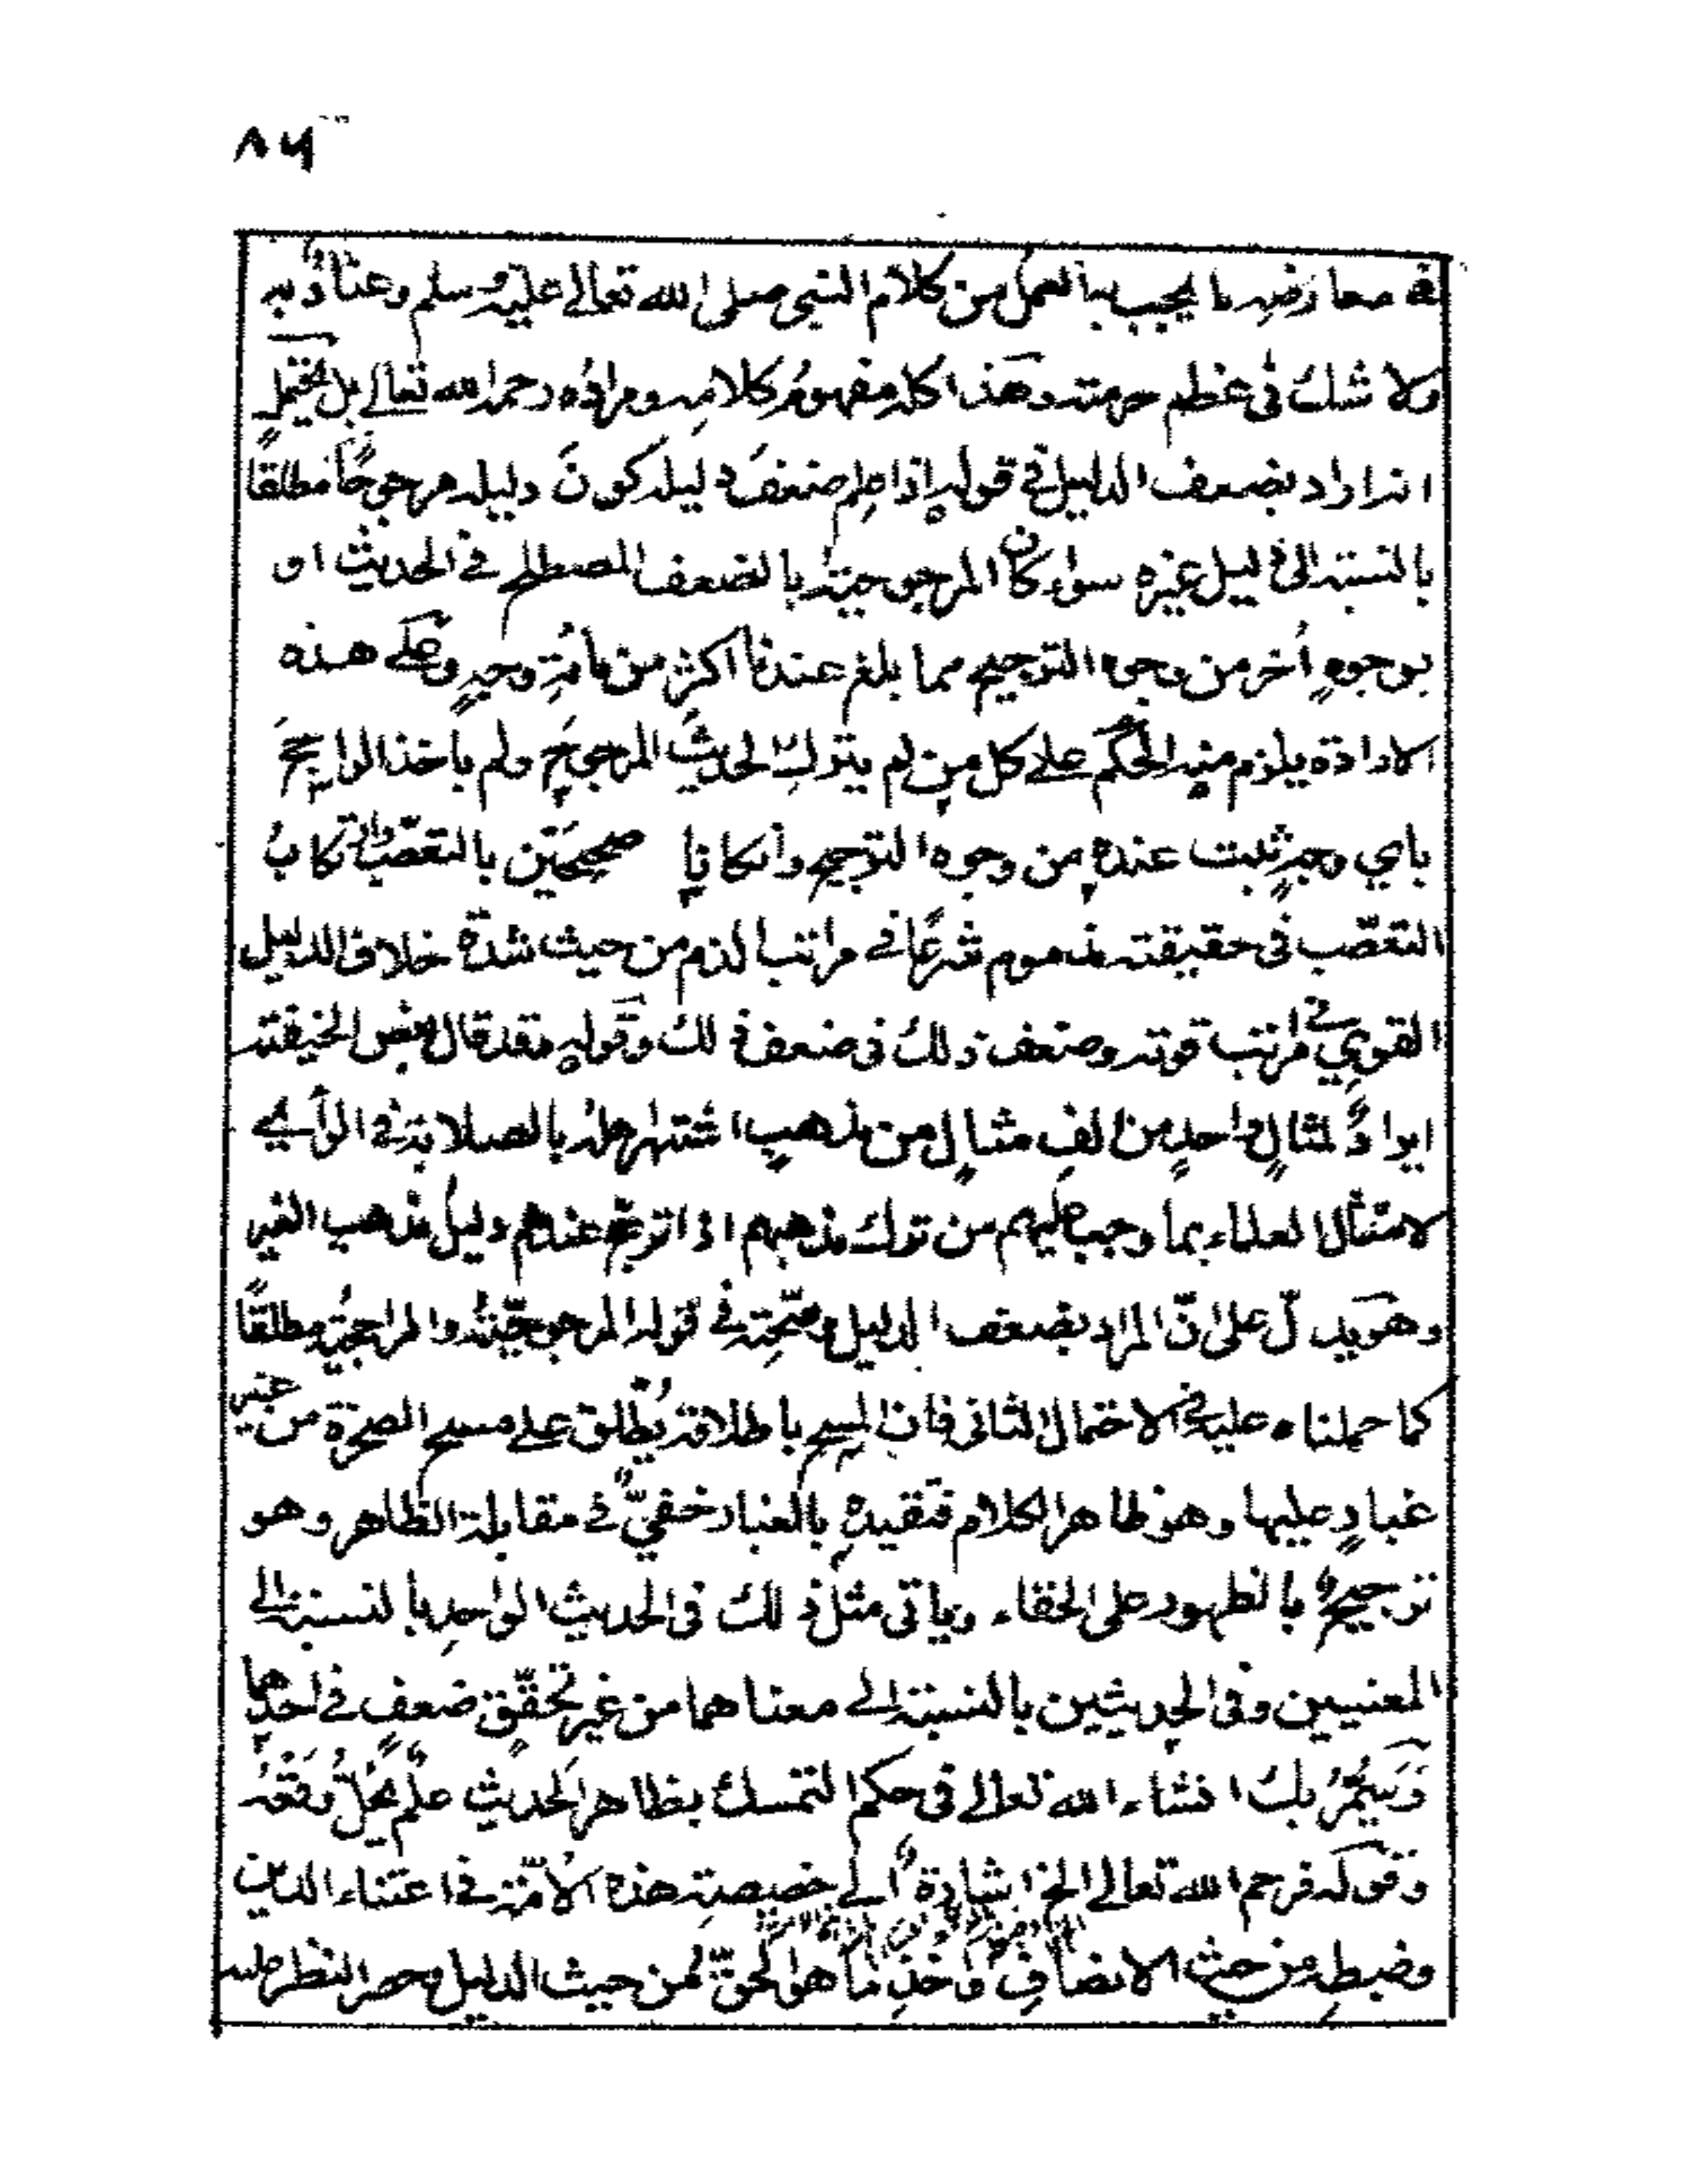 ٨٦
في معارضه ما يجب به العمل من كلام النبي صلى الله تعالى عليه وسلم وعنادٌ به
ولا شك في عظم حرمته وهذا كله مفهومُ كلامه ومرادُه رحمه الله تعالى بل يحتمل
انه اراد بضعف الدليل في قوله اذا علم ضعفَ دليله كونَ دليله مرجوحًا مطلقًا
بالنسبة الى دليل غيره سواء كان المرجوحيتُه بالضعف المصطلح في الحديث او
بوجوهٍ أخر من وجوه الترجيح مما بلغ عندنا اكثر من مأةِ وجهٍ وعلى هذه
الارادة يلزم منه الحكم على كل من لم يترك الحديثَ المرجوحَ ولم ياخذ الراجحَ
باي وجهٍ ثبت عنده من وجوه الترجيح وان كانا صحيحَين بالتعصّب وارتكابُ
التعصّب في حقيقته مذموم شرعًا في مراتب الذم من حيث شدّة خلاف الدليل
القوي في مراتب قوته وضعف ذلك في ضعف ذلك وقوله فقد قال بعض الحنفية
ايرادٌ لمثالٍ واحدٍ من الفِ مثالٍ من مذهبٍ اشتهر اهلُه بالصلابة في الرأي
لامتثال العلماء بما وجب عليهم من ترك مذهبهم اذا ترجّح عندهم دليلُ مذهب الغير
وهو يدلّ على انّ المراد بضعف الدليل وصحّته في قوله المرجوحيّتُه والراجحيّةُ مطلقًا
كما حملناه عليه في الاحتمال الثاني فان المسح باطلاقه يُطلق على مسح الصخرة من غير
غبارٍ عليها وهو ظاهر الكلام فتقيده بالغبار خفيٌّ في مقابلة الظاهر وهو
ترجيحٌ بالظهور على الخفاء وياتى مثل ذلك في الحديث الواحد بالنسبة الى
المعنيين وفي الحديثين بالنسبة الى معناهما من غير تحقّقِ ضعفٍ في احدهما
وَسَيَمُرُّ بك انشاء الله تعالى في حكم التمسك بظاهر الحديث علمٌ يَجُلُّ وقعُه
وقوله فرحم الله تعالى الخ اشارةٌ الى خصيصةِ هذه الامّة في اعتناء الدين
وضبطِه من حيث الانصافِ واخذِ ما هو الحقّ من حيث الدليل وحصر النظر عليه